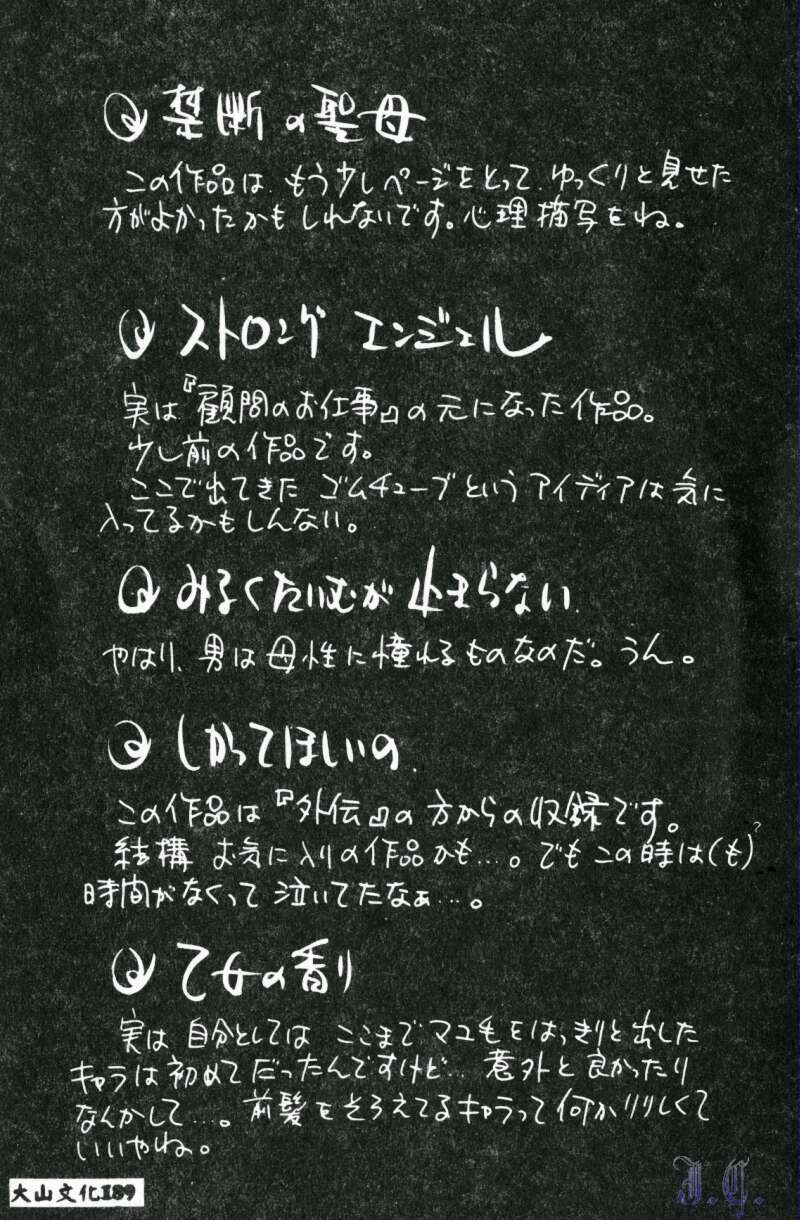 禁断の聖母
この作品は、もう少しページをとって、ゆっくりと見せた
方がよかったかもしれないです。心理描写をね。
ストロング エンジェル
実は『顧問のお仕事』の元になった作品。
少し前の作品です。
ここで出てきた ゴムチューブというアイディアは気に
入ってるかもしんない。
みるくたいむが止まらない
やはり、男は母性に憧れるものなのだ。うん。
しかってほしいの
この作品は『外伝』の方からの収録です。
結構 お気に入りの作品かも…。でもこの時は(も)?
時間がなくって泣いてたなぁ…。
乙女の香り
実は 自分としては ここまでマユ毛をはっきりと出した
キャラは初めてだったんですけど… 意外と良かったり
なんかして…。前髪をそろえてるキャラって何かりりしくて
いいやね。
大山文化189
J.Q.